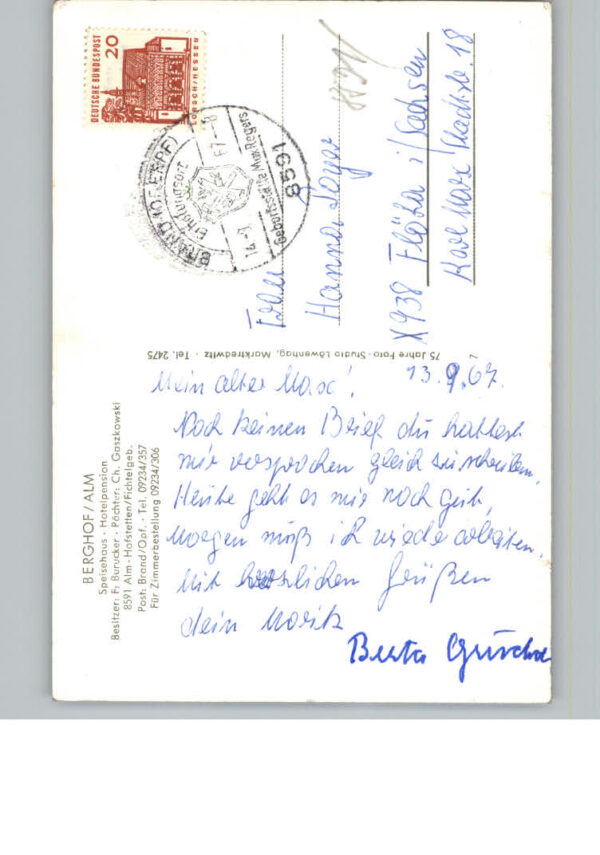 DEUTSCHE BUNDESPOST
20
LORSCH/HESSEN
BRAND (OBERPF)
Erholungsort
14.-9. 67 - 8
Geburtsort Max Regers
8591
8591
Hanna
X 938 Flöha i/Sachsen
Karl Marx Stadtstr. 18
75 Jahre Foto-Studio Löwenhag, Marktredwitz · Tel. 2475
BERGHOF/ALM
Speisehaus · Hotelpension
Besitzer: F. Burucker · Pächter: Ch. Gaszkowski
8591 Alm-Hofstetten/Fichtelgeb.
Post: Brand/Opf. · Tel. 09234/357
Für Zimmerbestellung 09234/306
13.9.67.
Mein alter Max!
Noch keinen Brief du hattest
mir versprochen gleich zu schreiben.
Heute geht es mir noch gut,
Morgen muß ich wieder arbeiten.
Mit herzlichen Grüßen
dein Moritz
Berta